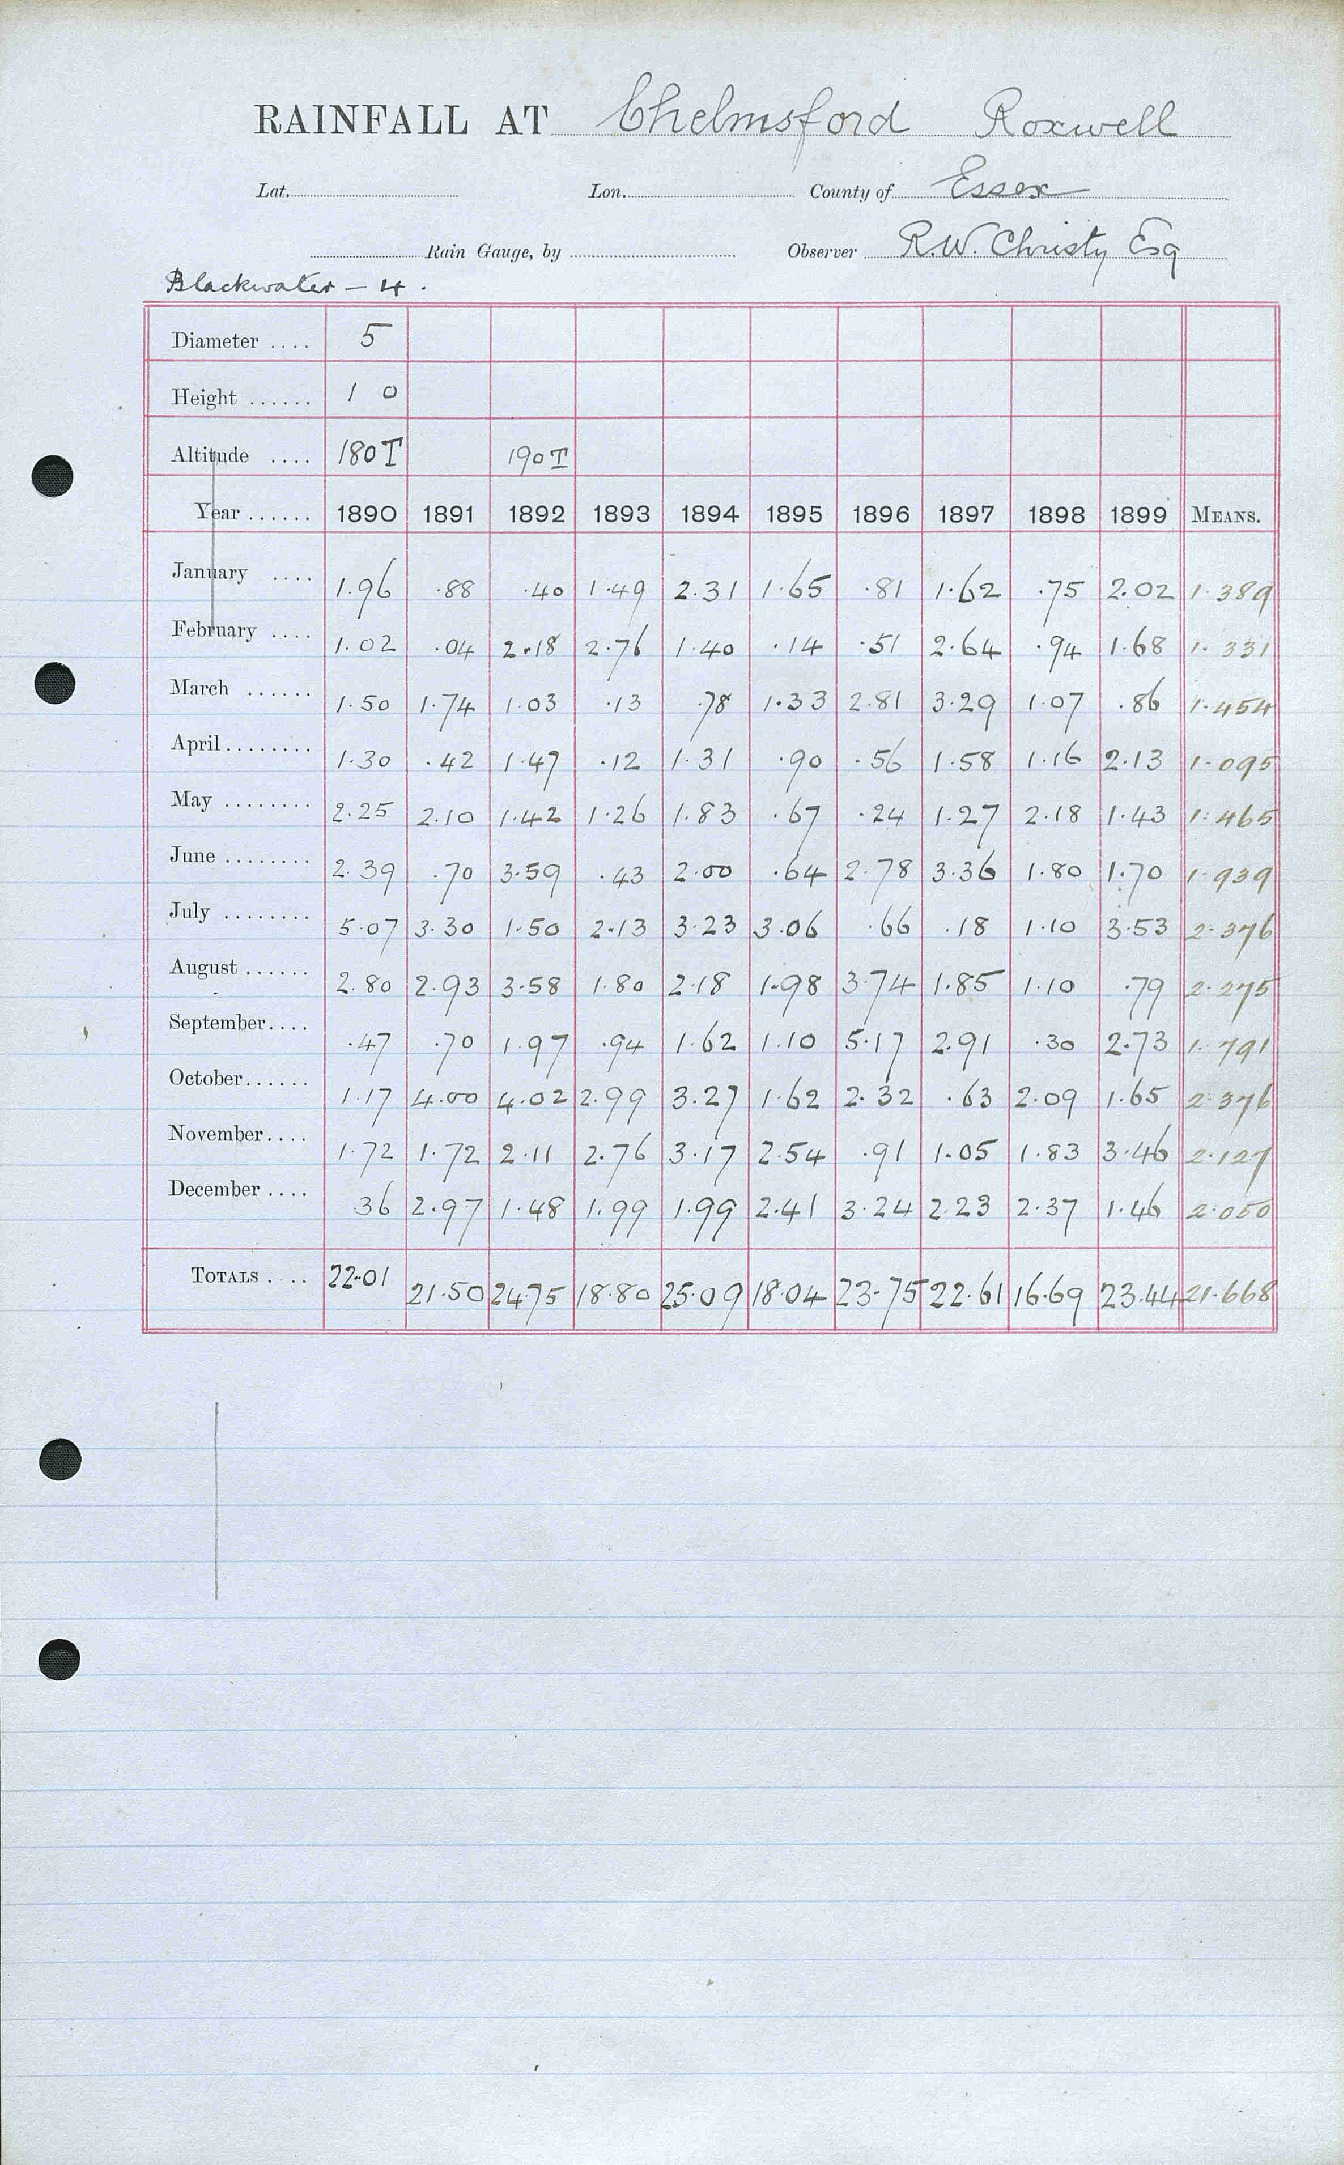 RAINFALL AT Chelmsford Roxwell
Lat. Lon. County of Essex
Rain Gauge, by Observer R.W. Christy Esq
Blackwater – 4.
Diameter .... 5
Height ...... 1 0
Altitude .... 180T 190T
Year ...... 1890 1891 1892 1893 1894 1895 1896 1897 1898 1899 MEANS.
January .... 1.96 .88 .40 1.49 2.31 1.65 .81 1.62 .75 2.02 1.389
February .... 1.02 .04 2.18 2.76 1.40 .14 .51 2.64 .94 1.68 1.331
March ...... 1.50 1.74 1.03 .13 .78 1.33 2.81 3.29 1.07 .86 1.454
April ........ 1.30 .42 1.47 .12 1.31 .90 .56 1.58 1.16 2.13 1.095
May ........ 2.25 2.10 1.42 1.26 1.83 .67 .24 1.27 2.18 1.43 1.465
June ........ 2.39 .70 3.59 .43 2.00 .64 2.78 3.36 1.80 1.70 1.939
July ........ 5.07 3.30 1.50 2.13 3.23 3.06 .66 .18 1.10 3.53 2.376
August ...... 2.80 2.93 3.58 1.80 2.18 1.98 3.74 1.85 1.10 .79 2.275
September.... .47 .70 1.97 .94 1.62 1.10 5.17 2.91 .30 2.73 1.791
October...... 1.17 4.00 4.02 2.99 3.27 1.62 2.32 .63 2.09 1.65 2.376
November.... 1.72 1.72 2.11 2.76 3.17 2.54 .91 1.05 1.83 3.46 2.127
December .... 36 2.97 1.48 1.99 1.99 2.41 3.24 2.23 2.37 1.46 2.050
TOTALS .... 22.01 21.50 24.75 18.80 25.09 18.04 23.75 22.61 16.69 23.44 21.668